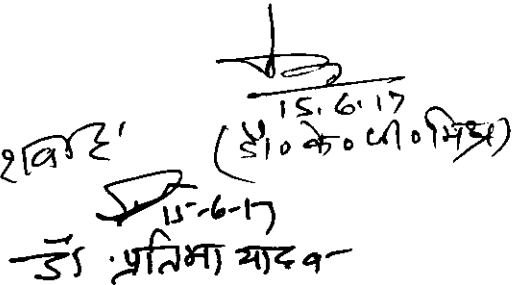 15.6.17
(डॉ० के० पी० मिश्र)
15-6-17
डॉ. प्रतिमा यादव